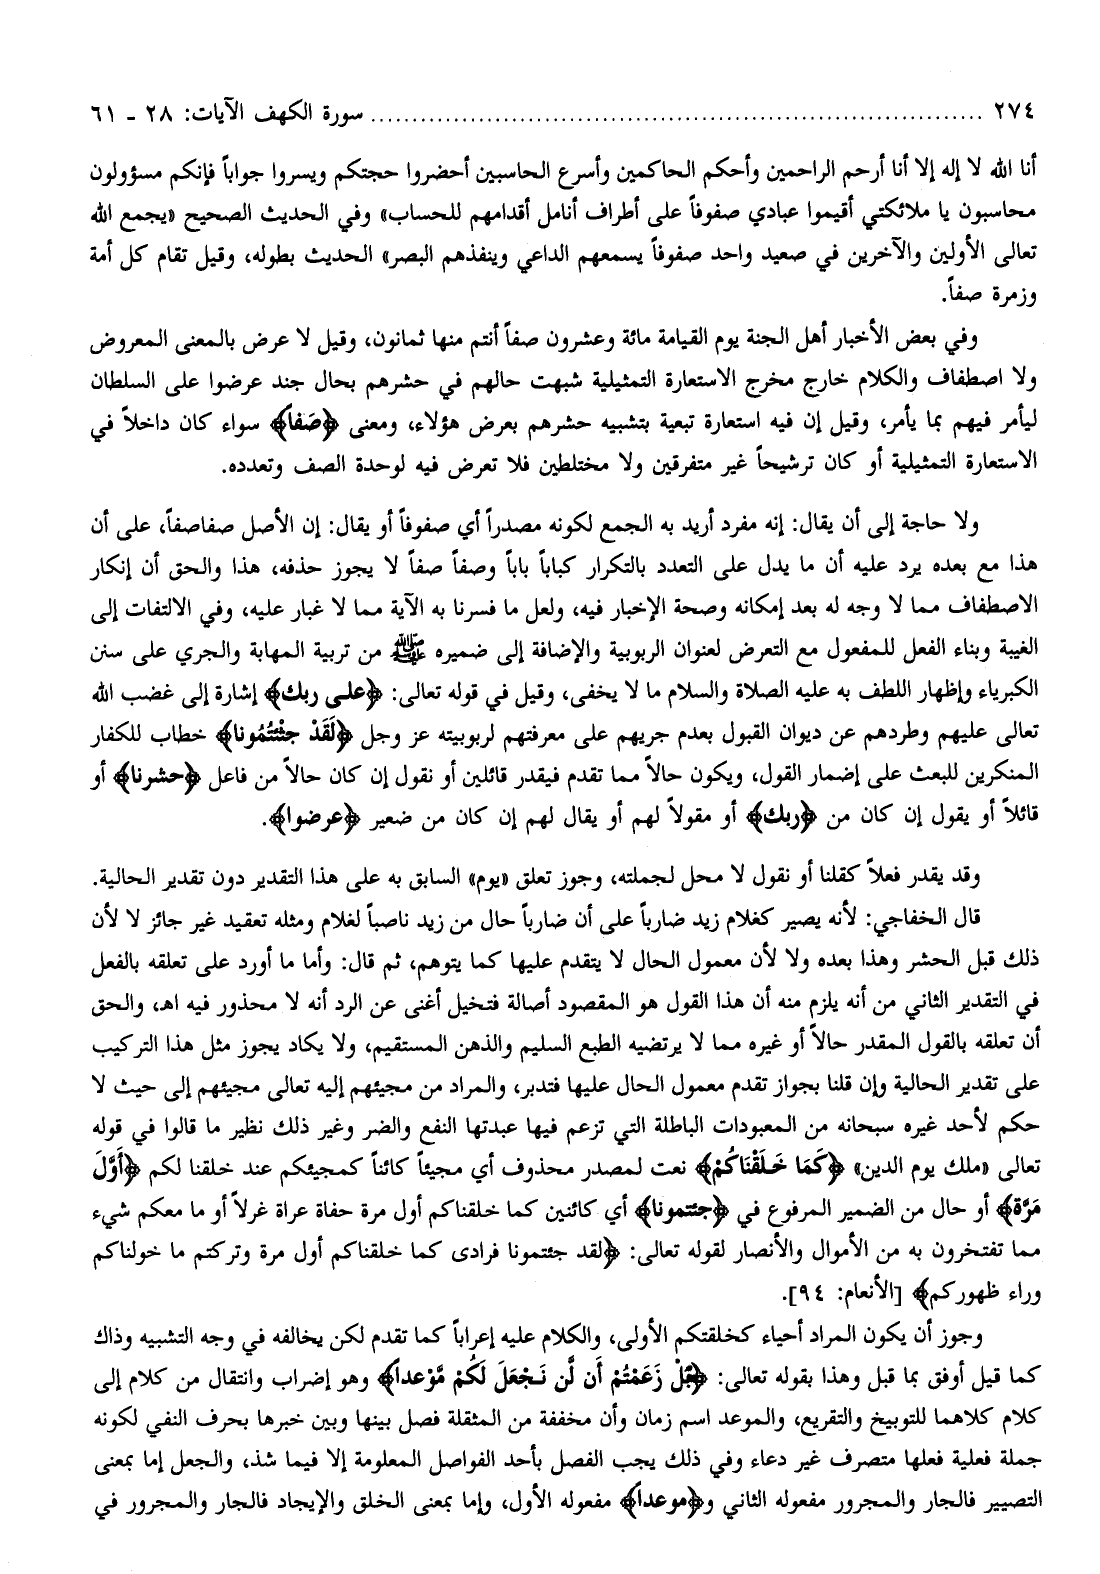 ٢٧٤ ........................................................................... سورة الكهف الآيات: ٢٨ - ٦١
أنا الله لا إله إلا أنا أرحم الراحمين وأحكم الحاكمين وأسرع الحاسبين أحضروا حجتكم ويسروا جواباً فإنكم مسؤولون
محاسبون يا ملائكتي أقيموا عبادي صفوفاً على أطراف أنامل أقدامهم للحساب» وفي الحديث الصحيح «يجمع الله
تعالى الأولين والآخرين في صعيد واحد صفوفاً يسمعهم الداعي وينفذهم البصر» الحديث بطوله، وقيل تقام كل أمة
وزمرة صفاً.
وفي بعض الأخبار أهل الجنة يوم القيامة مائة وعشرون صفاً أنتم منها ثمانون، وقيل لا عرض بالمعنى المعروض
ولا اصطفاف والكلام خارج مخرج الاستعارة التمثيلية شبهت حالهم في حشرهم بحال جند عرضوا على السلطان
ليأمر فيهم بما يأمر، وقيل إن فيه استعارة تبعية بتشبيه حشرهم بعرض هؤلاء، ومعنى ﴿صَفاً﴾ سواء كان داخلاً في
الاستعارة التمثيلية أو كان ترشيحاً غير متفرقين ولا مختلطين فلا تعرض فيه لوحدة الصف وتعدده.
ولا حاجة إلى أن يقال: إنه مفرد أريد به الجمع لكونه مصدراً أي صفوفاً أو يقال: إن الأصل صفاصفاً، على أن
هذا مع بعده يرد عليه أن ما يدل على التعدد بالتكرار كباباً باباً وصفاً صفاً لا يجوز حذفه، هذا والحق أن إنكار
الاصطفاف مما لا وجه له بعد إمكانه وصحة الإخبار فيه، ولعل ما فسرنا به الآية مما لا غبار عليه، وفي الالتفات إلى
الغيبة وبناء الفعل للمفعول مع التعرض لعنوان الربوبية والإضافة إلى ضميره ﷺ من تربية المهابة والجري على سنن
الكبرياء وإظهار اللطف به عليه الصلاة والسلام ما لا يخفى، وقيل في قوله تعالى: ﴿على ربك﴾ إشارة إلى غضب الله
تعالى عليهم وطردهم عن ديوان القبول بعدم جريهم على معرفتهم لربوبيته عز وجل ﴿لَقَدْ جِئْتُمُونا﴾ خطاب للكفار
المنكرين للبعث على إضمار القول، ويكون حالاً مما تقدم فيقدر قائلين أو نقول إن كان حالاً من فاعل ﴿حشرنا﴾ أو
قائلاً أو يقول إن كان من ﴿ربك﴾ أو مقولاً لهم أو يقال لهم إن كان من ضعير ﴿عرضوا﴾.
وقد يقدر فعلاً كقلنا أو نقول لا محل لجملته، وجوز تعلق «يوم» السابق به على هذا التقدير دون تقدير الحالية.
قال الخفاجي: لأنه يصير كغلام زيد ضارباً على أن ضارباً حال من زيد ناصباً لغلام ومثله تعقيد غير جائز لا لأن
ذلك قبل الحشر وهذا بعده ولا لأن معمول الحال لا يتقدم عليها كما يتوهم، ثم قال: وأما ما أورد على تعلقه بالفعل
في التقدير الثاني من أنه يلزم منه أن هذا القول هو المقصود أصالة فتخيل أغنى عن الرد أنه لا محذور فيه اهـ، والحق
أن تعلقه بالقول المقدر حالاً أو غيره مما لا يرتضيه الطبع السليم والذهن المستقيم، ولا يكاد يجوز مثل هذا التركيب
على تقدير الحالية وإن قلنا بجواز تقدم معمول الحال عليها فتدبر، والمراد من مجيئهم إليه تعالى مجيئهم إلى حيث لا
حكم لأحد غيره سبحانه من المعبودات الباطلة التي تزعم فيها عبدتها النفع والضر وغير ذلك نظير ما قالوا في قوله
تعالى «ملك يوم الدين» ﴿كَمَا خَلَقْنَاكُمْ﴾ نعت لمصدر محذوف أي مجيئاً كائناً كمجيئكم عند خلقنا لكم ﴿أَوَّلَ
مَرَّة﴾ أو حال من الضمير المرفوع في ﴿جئتمونا﴾ أي كائنين كما خلقناكم أول مرة حفاة عراة غرلاً أو ما معكم شيء
مما تفتخرون به من الأموال والأنصار لقوله تعالى: ﴿لقد جئتمونا فرادى كما خلقناكم أول مرة وتركتم ما خولناكم
وراء ظهوركم﴾ [الأنعام: ٩٤].
وجوز أن يكون المراد أحياء كخلقتكم الأولى، والكلام عليه إعراباً كما تقدم لكن يخالفه في وجه التشبيه وذاك
كما قيل أوفق بما قبل وهذا بقوله تعالى: ﴿بَلْ زَعَمْتُمْ أَن لَّن نَـجْعَلَ لَكُمْ مَّوْعداً﴾ وهو إضراب وانتقال من كلام إلى
كلام كلاهما للتوبيخ والتقريع، والموعد اسم زمان وأن مخففة من المثقلة فصل بينها وبين خبرها بحرف النفي لكونه
جملة فعلية فعلها متصرف غير دعاء وفي ذلك يجب الفصل بأحد الفواصل المعلومة إلا فيما شذ، والجعل إما بمعنى
التصيير فالجار والمجرور مفعوله الثاني و﴿موعداً﴾ مفعوله الأول، وإما بمعنى الخلق والإيجاد فالجار والمجرور في